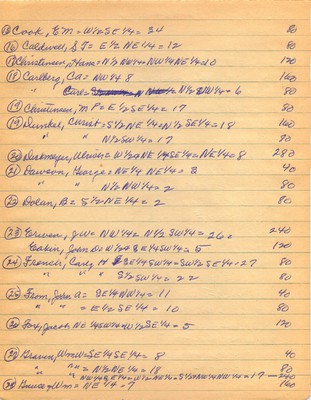 (15) Cook, E M = W 1/2 SE 1/4 = 24 80
(16) Caldwell, S J = E 1/2 NE 1/4 = 12 80
(17) Christensen, Hans = N 1/2 NW 1/4 = NW 1/4 NE 1/4 = 10 120
(18) Carlberg, Ca = NW 1/4 8 160
" Carl = N 1/2 NW 1/4 = 6 80
(19) Christensen, M P = E 1/2 SE 1/4 = 17 80
(19) Dunkel, Christ = S 1/2 NE 1/4 = N 1/2 SE 1/4 = 18 160
" " N 1/2 SW 1/4 = 17 80
(20) Diekmeyer, Ulrich = W 1/2 = NE 1/4 SE 1/4 = NE 1/4 = 8 280
(21) Dawson, George = NE 1/4 NE 1/4 = 3 40
" " N 1/2 NW 1/4 = 2 80
(22) Dolan, B = S 1/2 NE 1/4 = 2 80
(23) J W = NW 1/4 = N 1/2 SW 1/4 = 26 = 240
Eakin, John D = W 1/2 = SE 1/4 SW 1/4 = 5 120
(24) French, Cary H SE 1/4 SW 1/4 = SW 1/2 SE 1/4 = 27 80
" " S 1/2 SW 1/4 = 22 80
(25) From, John A = SE 1/4 NW 1/4 = 11 40
" " = E 1/2 SE 1/4 = 10 80
(26) Fox, Jacob NE 1/4 SW 1/4 = W 1/2 SE 1/4 = 5 120
(27) Graven, Wm W = SE 1/4 SE 1/4 = 8 40
" " = N 1/2 NE 1/4 = 18 80
" " NW 1/4 SE 1/4 = W 1/2 NE 1/4 = S 1/2 NW 1/4 NW 1/4 = 17 - 240
(28) Wm = NE 1/4 - 7 160